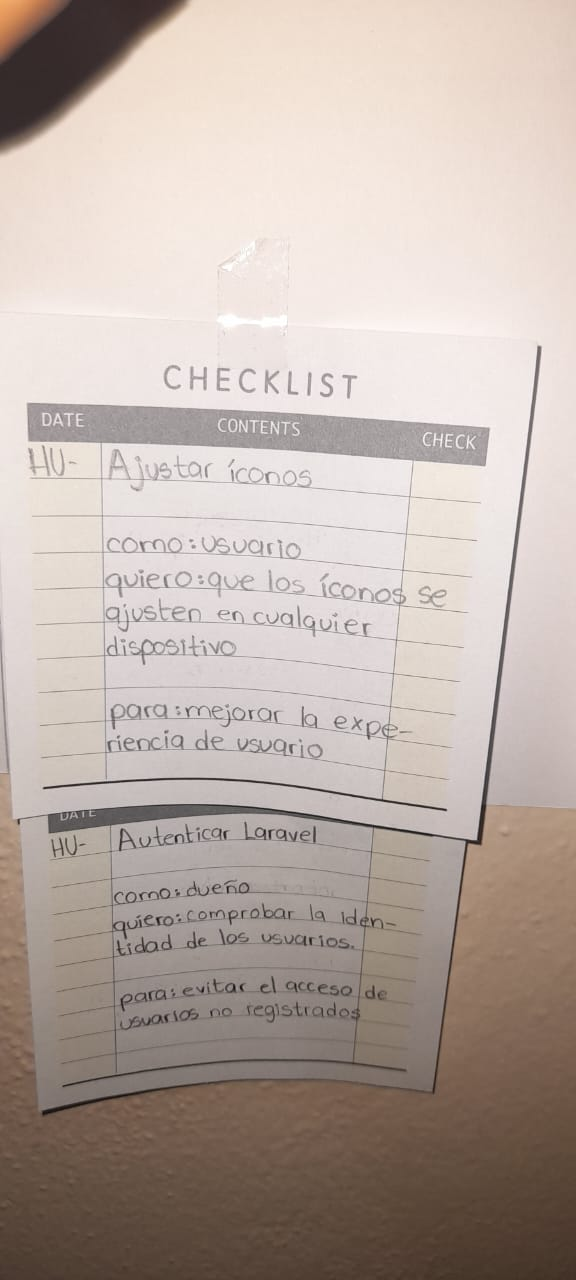 CHECKLIST
DATE CONTENTS CHECK
HU- Ajustar íconos
como: usuario
quiero: que los íconos se
ajusten en cualquier
dispositivo
para: mejorar la expe-
riencia de usuario
DATE
HU- Autenticar Laravel
como: dueño
quiero: comprobar la iden-
tidad de los usuarios.
para: evitar el acceso de
usuarios no registrados